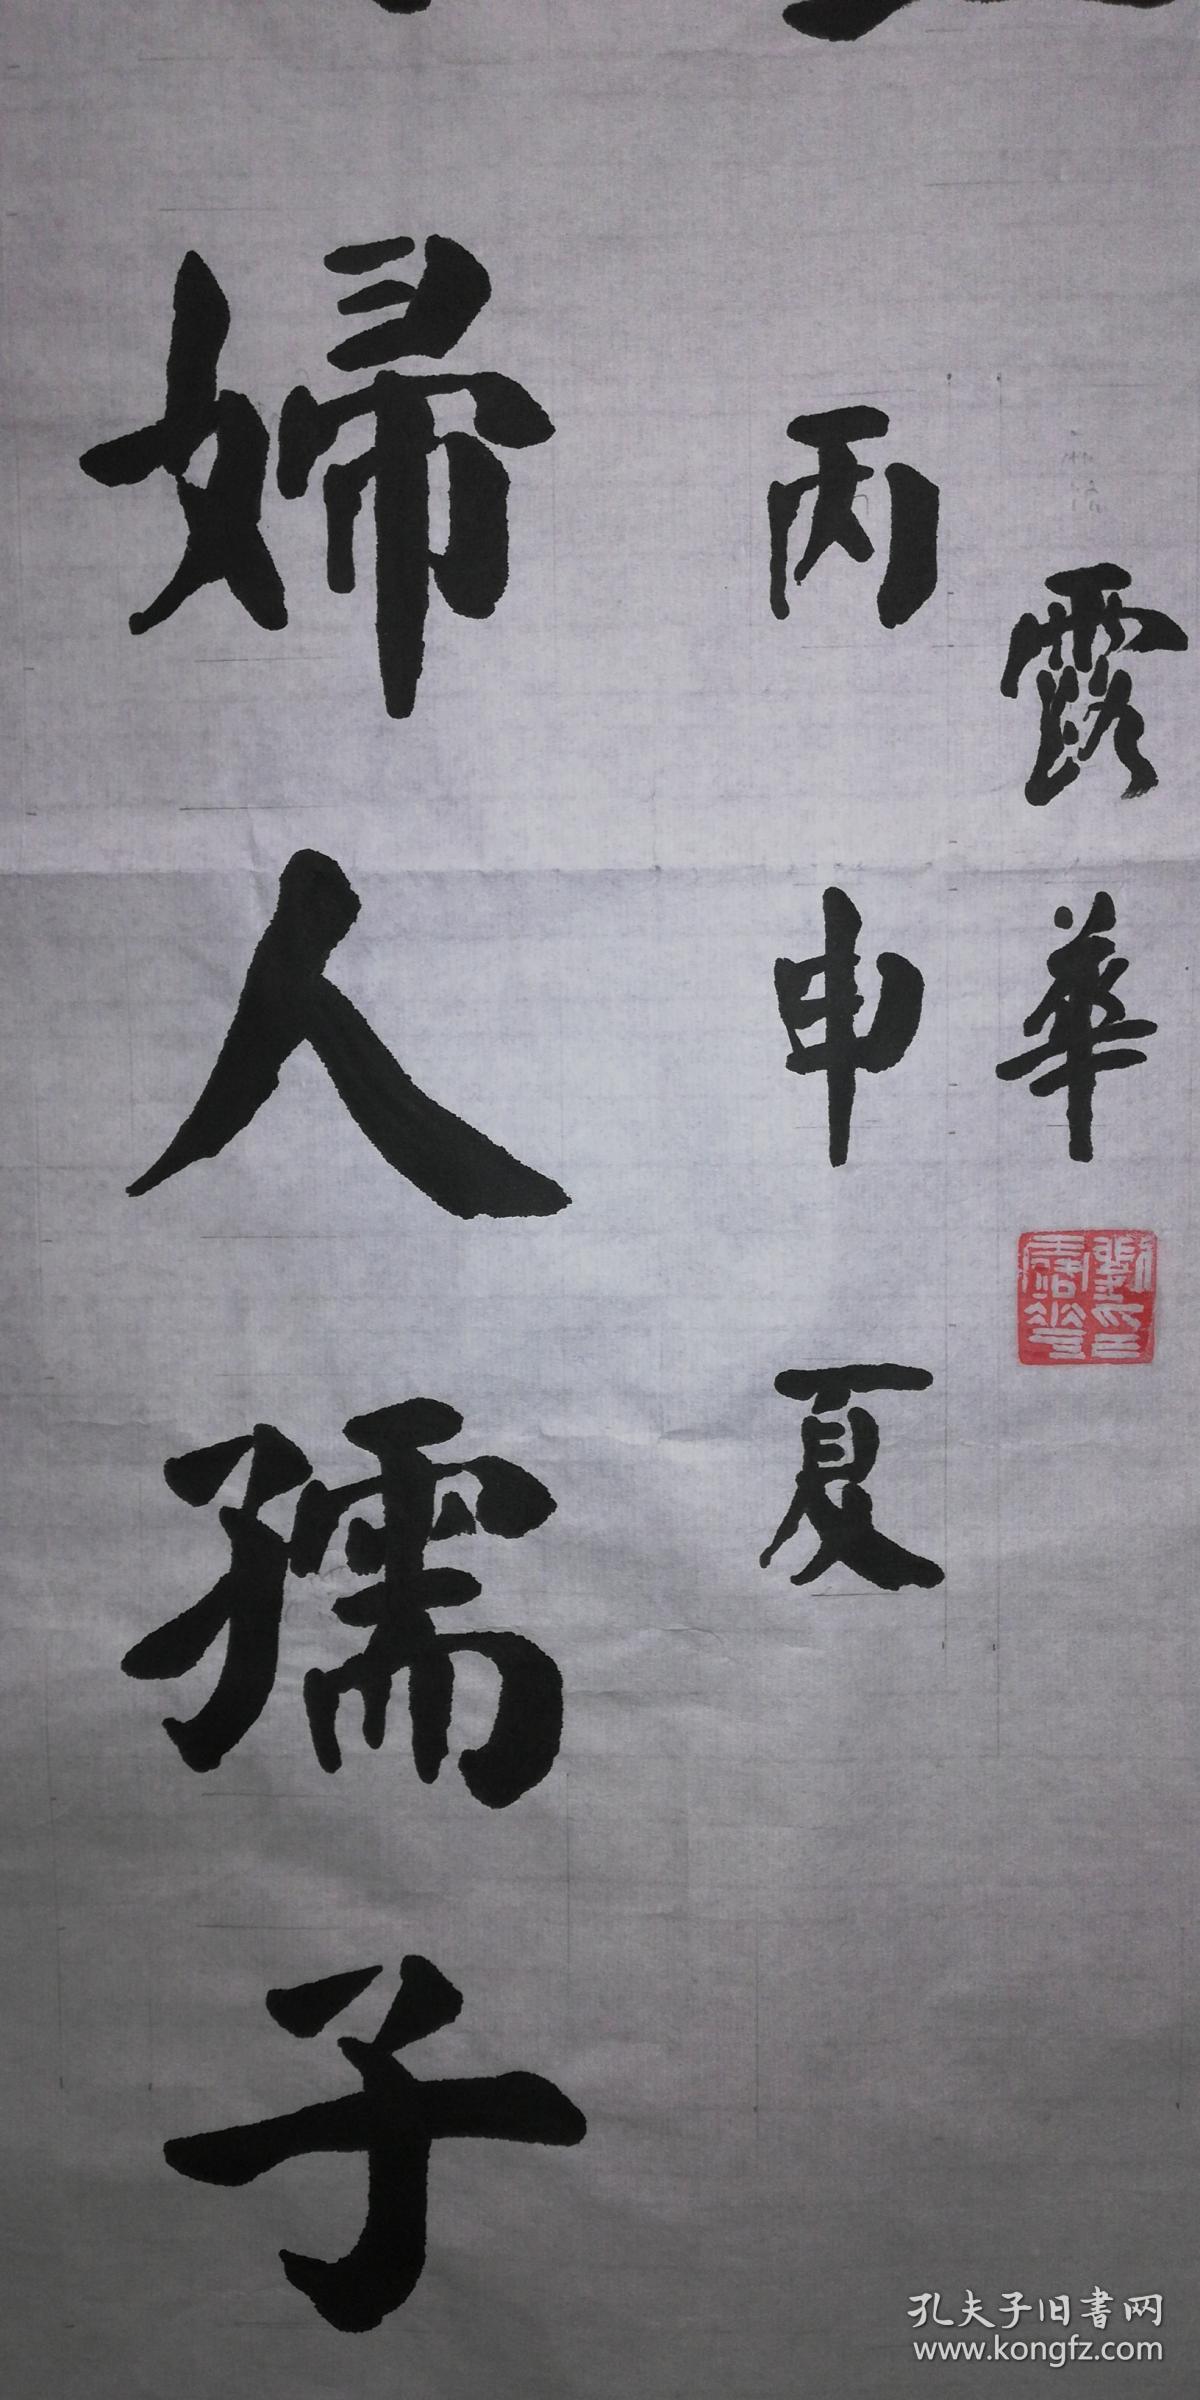 婦人孺子
丙申夏
露華
劉印
露華
孔夫子旧书网
www.kongfz.com